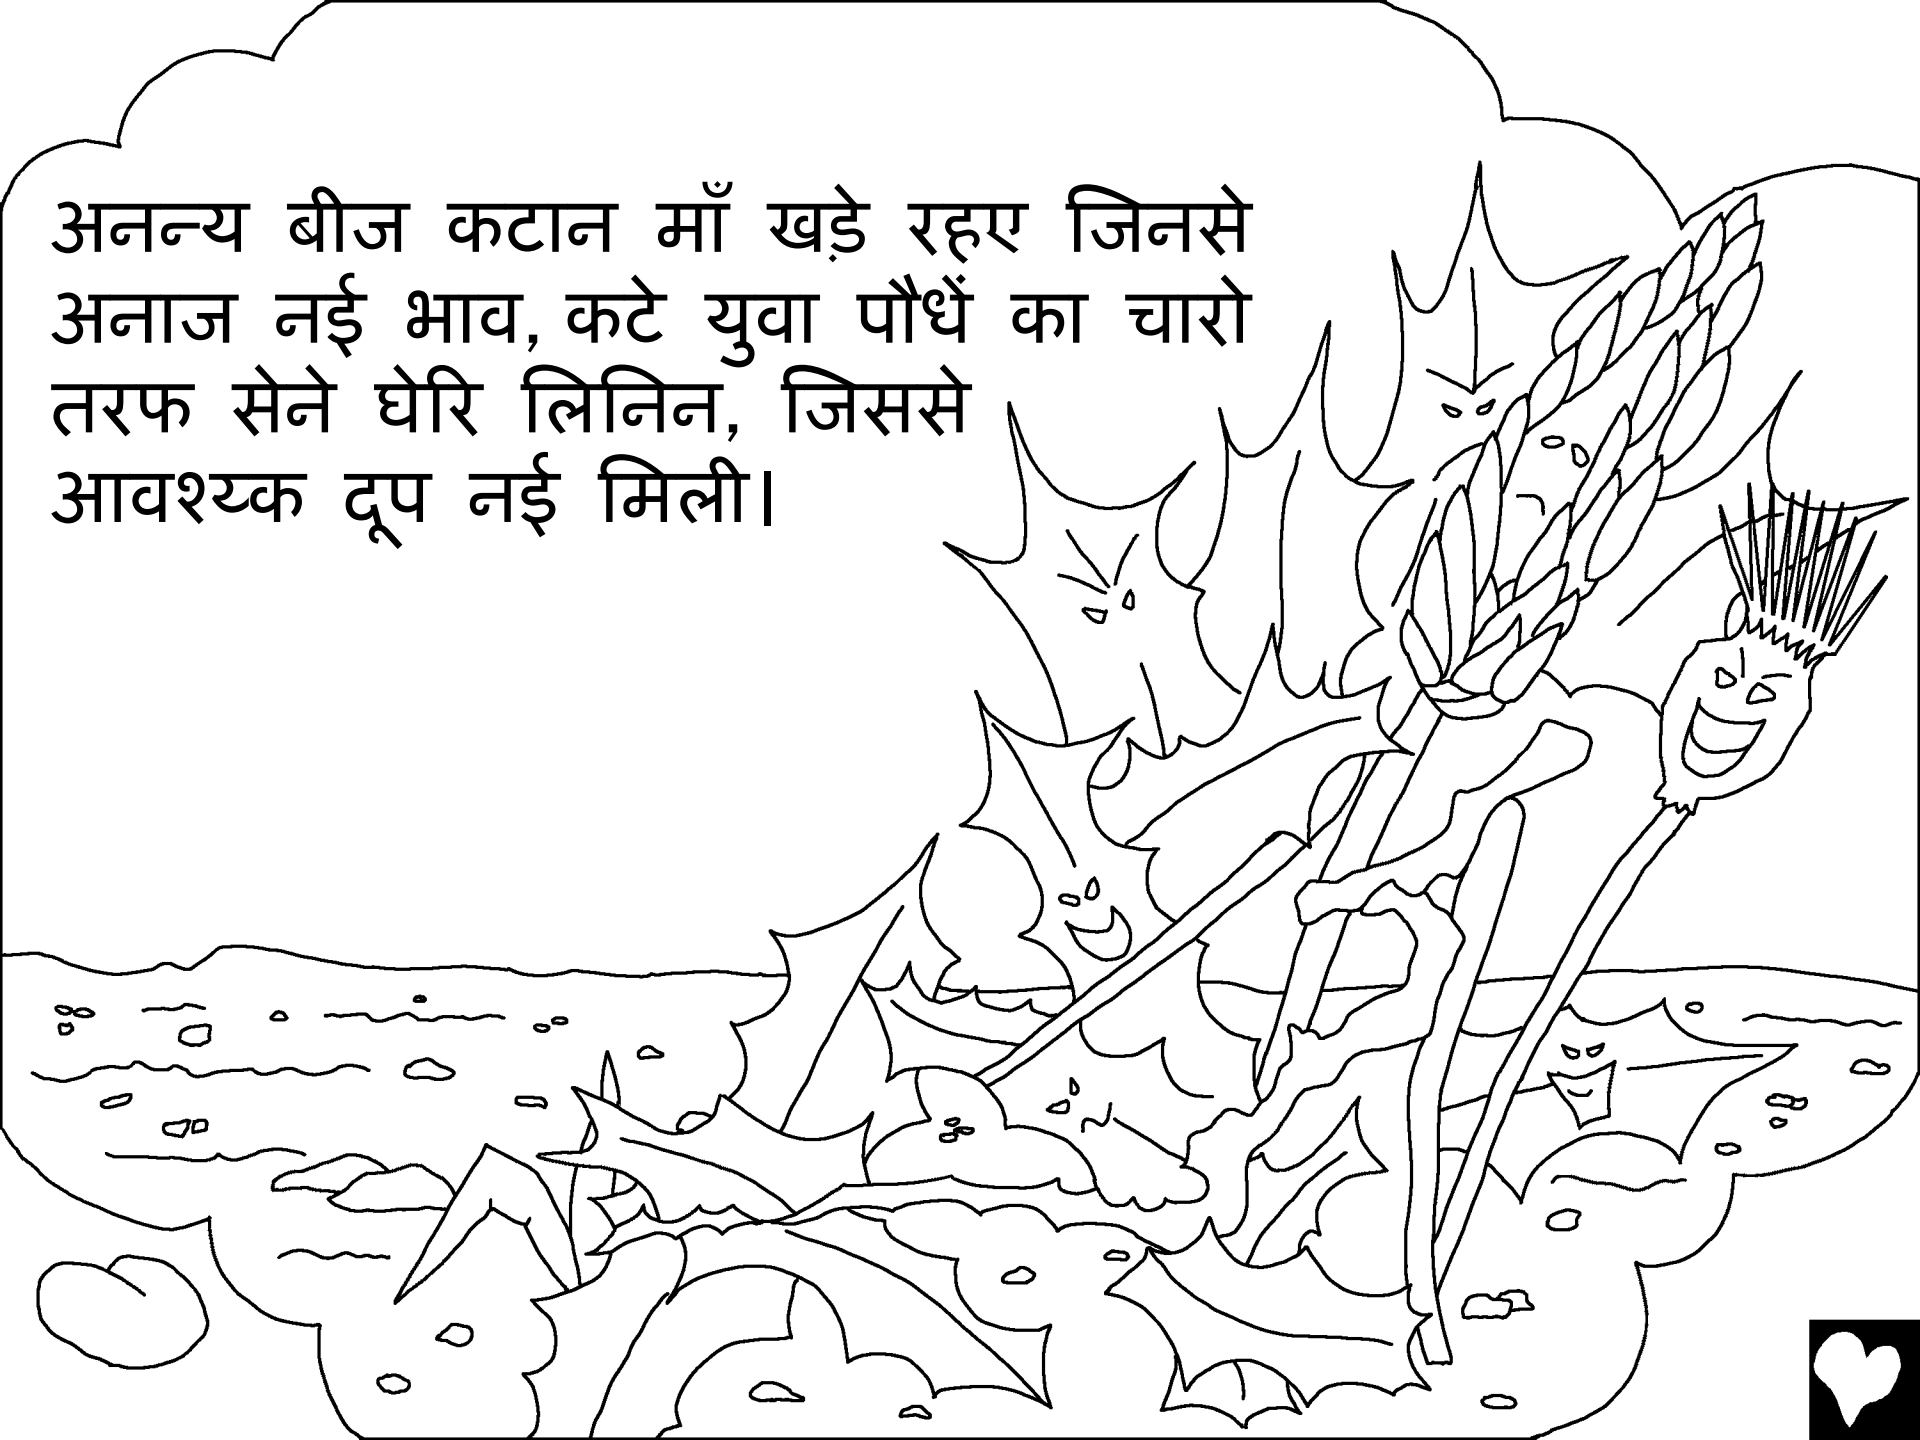 अनन्य बीज कटान माँ खड़े रहए जिनसे
अनाज नई भाव, कटे युवा पौधें का चारो
तरफ सेने घेरि लिनिन, जिससे
आवश्य्क दूप नई मिली।